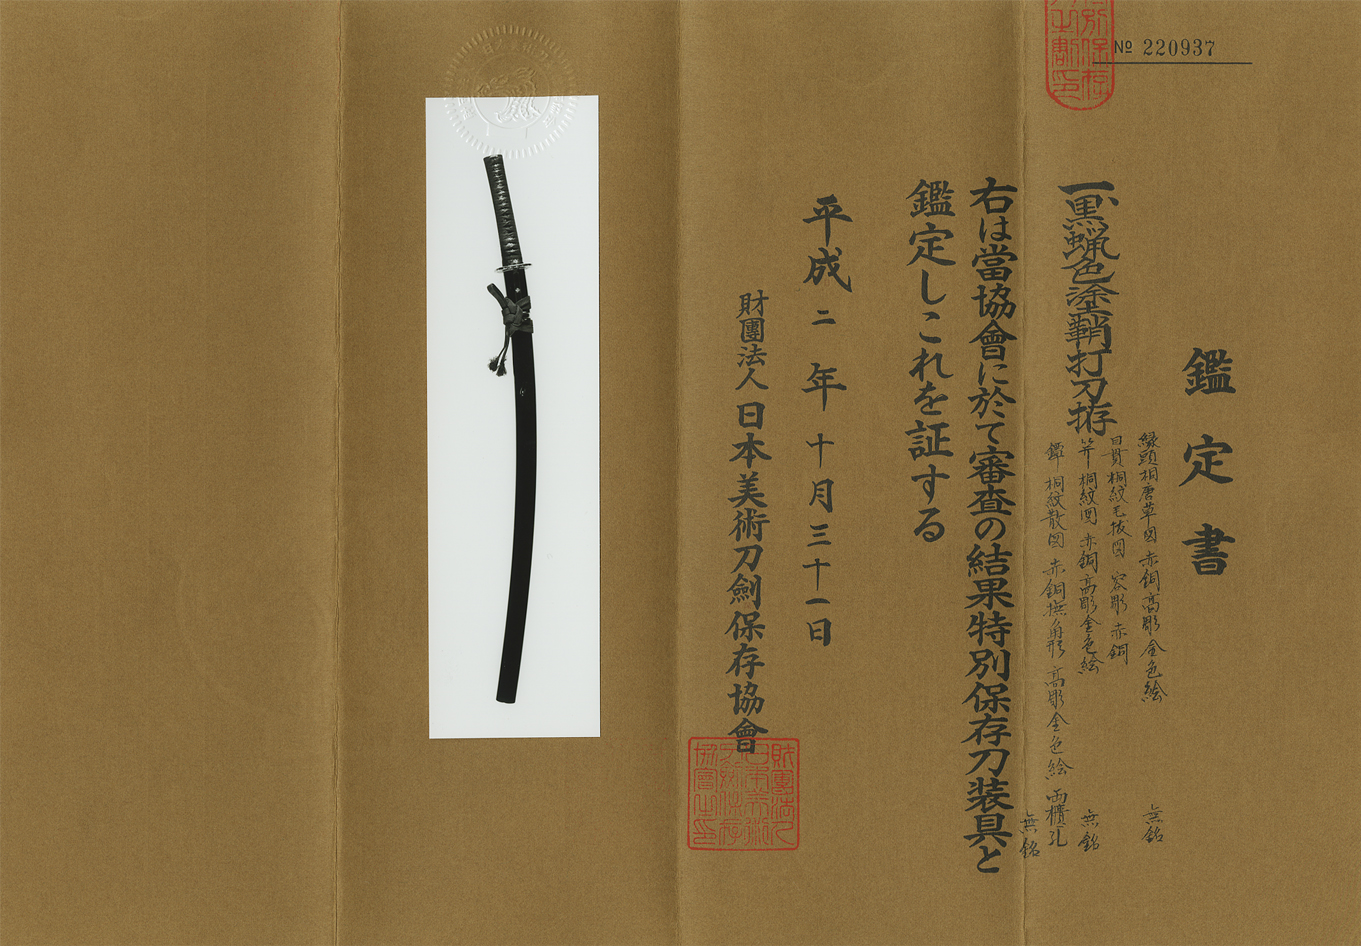 № 220937
鑑定書
一、黒蝋色塗鞘打刀拵
縁頭 桐唐草図 赤銅高彫金色絵 無銘
目貫 桐紋毛抜図 容彫 赤銅
笄 桐紋図 赤銅高彫金色絵 無銘
鐔 桐紋散図 赤銅撫角形 高彫金色絵 両櫃孔 無銘
右は當協會に於て審査の結果特別保存刀装具と
鑑定しこれを証する
平成二年十月三十一日
財團法人 日本美術刀劍保存協會
財團法人
日本美術
刀剣保存
協會之印